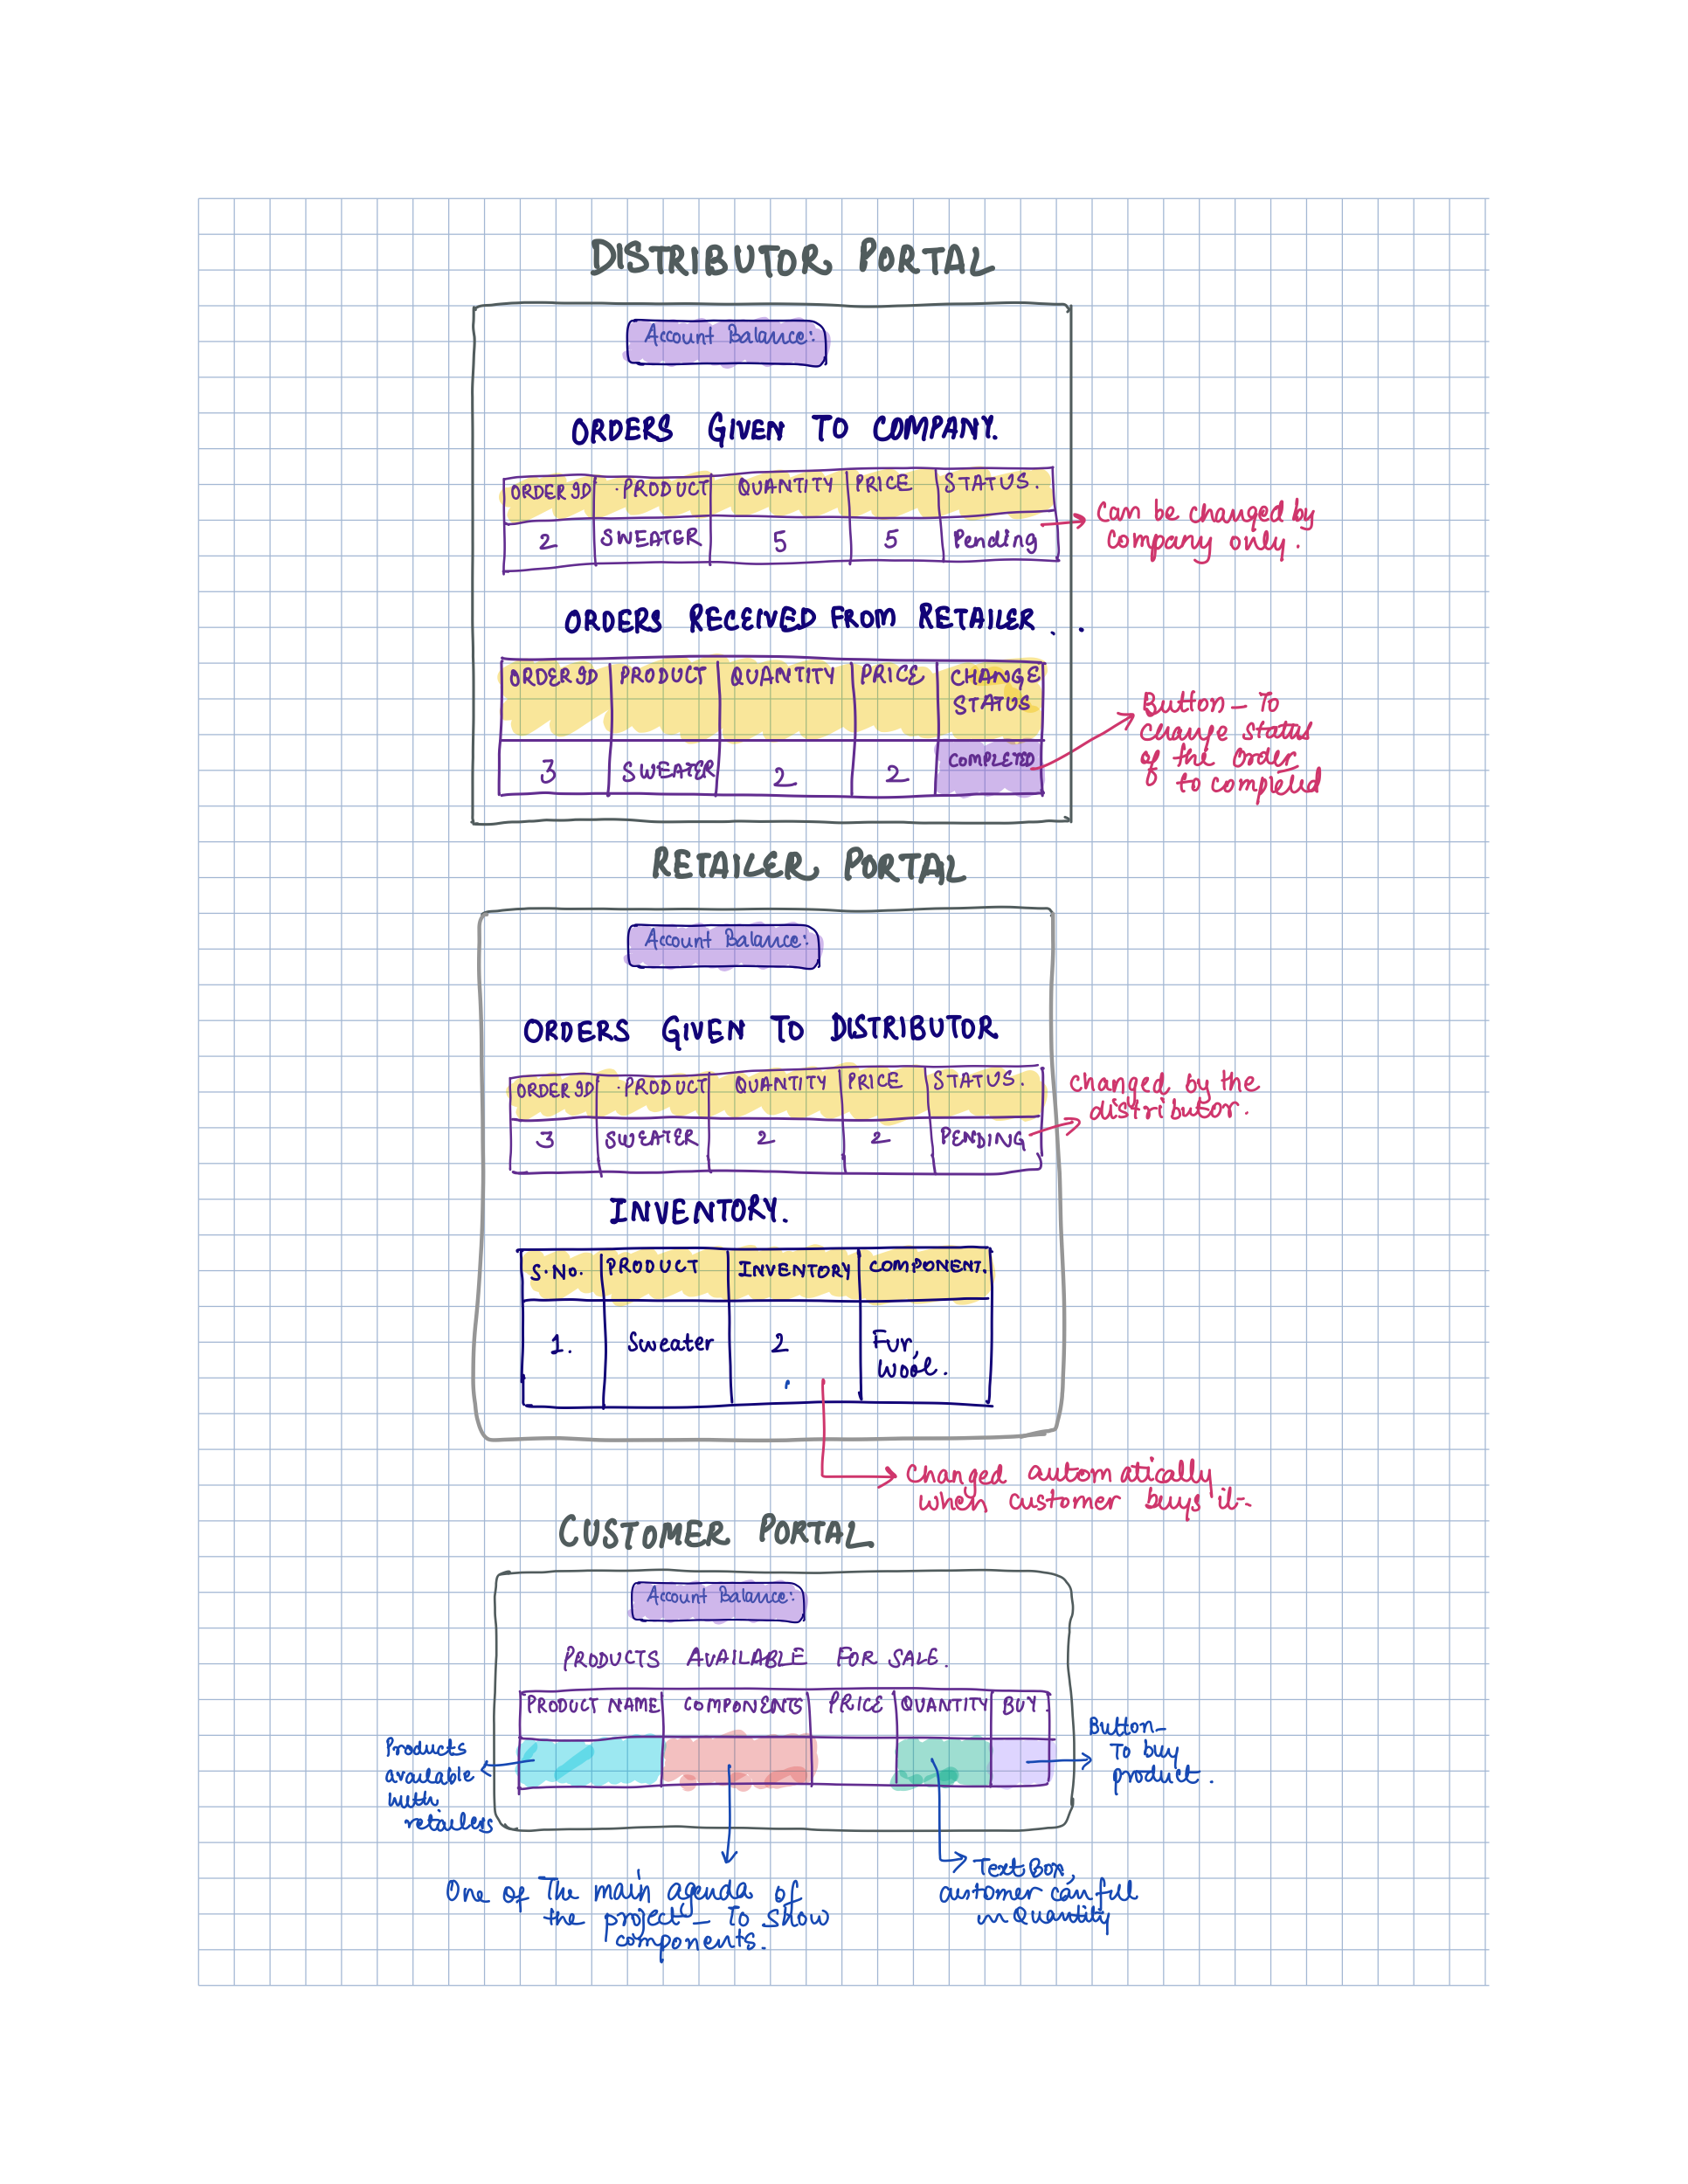 DISTRIBUTOR PORTAL
Account Balance:
ORDERS GIVEN TO COMPANY.
ORDER ID PRODUCT QUANTITY PRICE STATUS.
2 SWEATER 5 5 Pending
Can be changed by
company only.
ORDERS RECEIVED FROM RETAILER . .
ORDER ID PRODUCT QUANTITY PRICE CHANGE
STATUS
3 SWEATER 2 2 COMPLETED
Button - To
change status
of the order
to completed
RETAILER PORTAL
Account Balance:
ORDERS GIVEN TO DISTRIBUTOR
ORDER ID PRODUCT QUANTITY PRICE STATUS.
3 SWEATER 2 2 PENDING
changed by the
distributor.
INVENTORY.
S.No. PRODUCT INVENTORY COMPONENT.
1. Sweater 2 Fur,
wool.
Changed automatically
when customer buys it.
CUSTOMER PORTAL
Account Balance:
PRODUCTS AVAILABLE FOR SALE.
PRODUCT NAME COMPONENTS PRICE QUANTITY BUY.
Products
available
with
retailers
Button-
To buy
product.
One of The main agenda of
the project - To show
components.
Text Box,
customer can fill
in Quantity